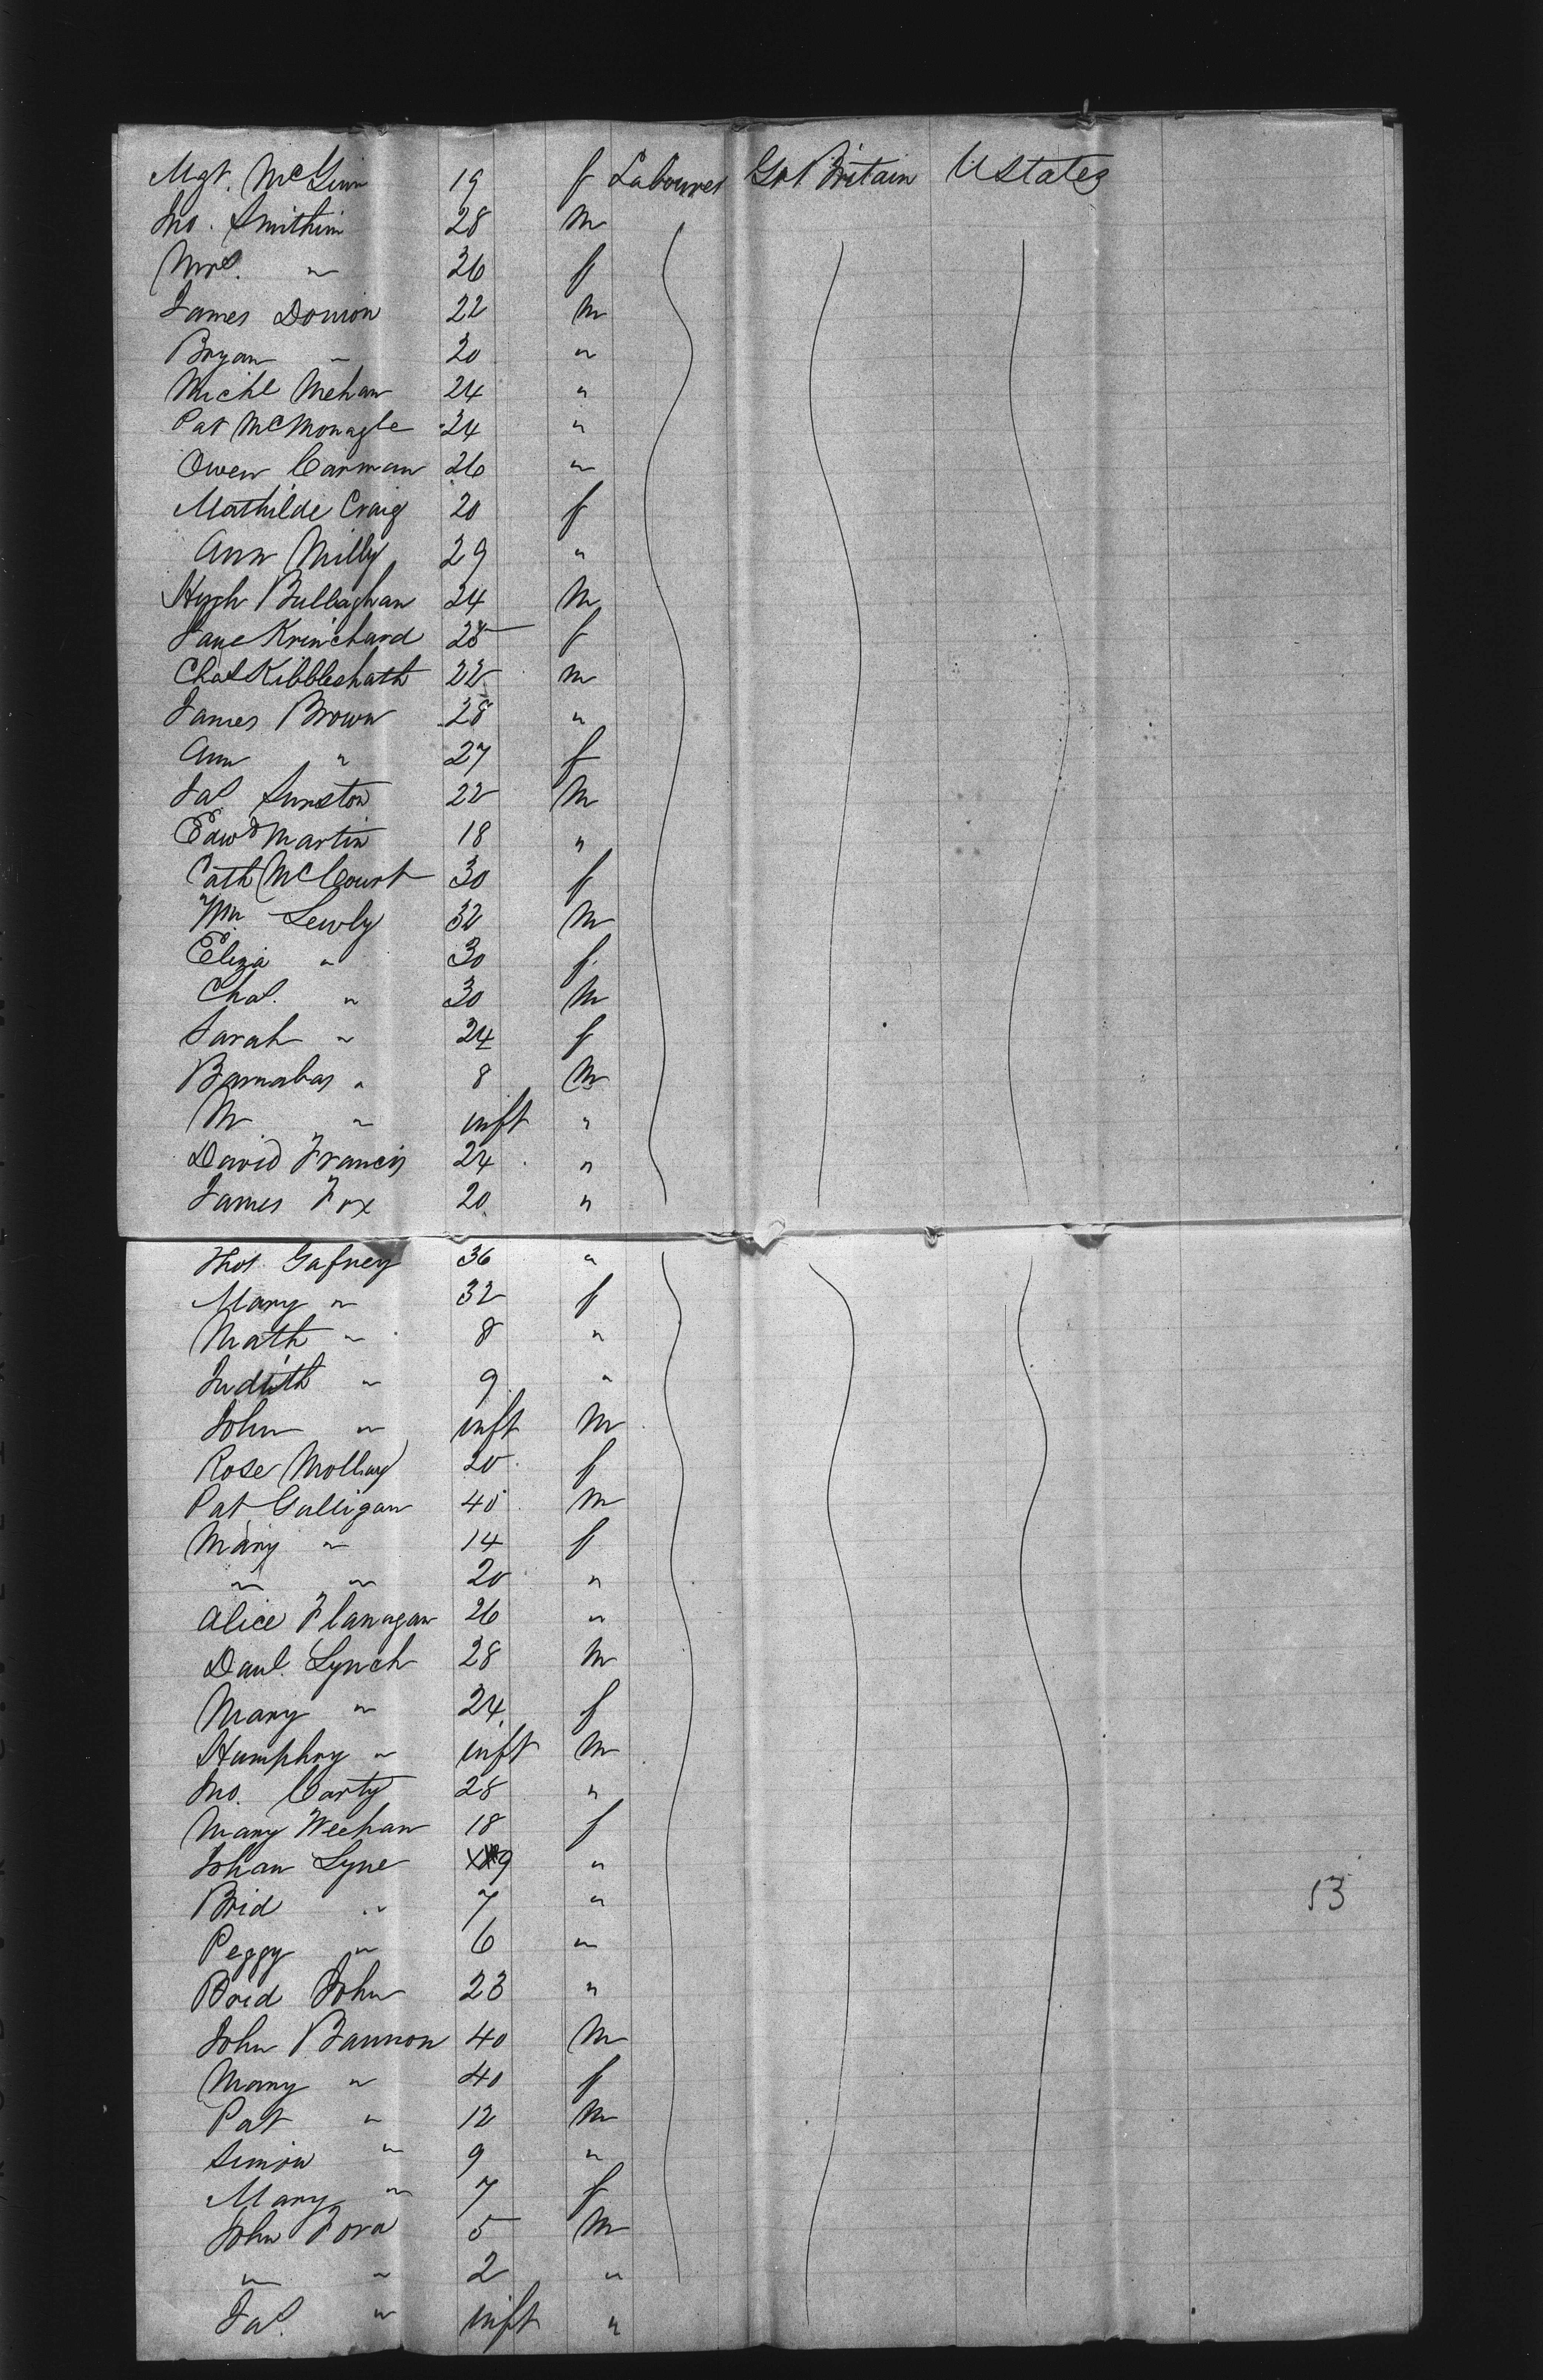 Mgt. McGinn 19 f Labourer Grt Britain UStates
Jno. Smithin 28 m
Mrs. " 26 f
James Donion 22 m
Bryan " 20 "
Michl Mehan 24 "
Pat McMonagle 24 "
Owen Carman 26 "
Mathilde Craig 20 f
Ann Milly 29 "
Hugh Bullaghan 24 m
Jane Krinchard 25 f
Chas Kibbleshath 22 m
James Brown 28 "
Ann " 27 f
Jas. Sunston 22 m
Edwd Martin 18 "
Cath McCourt 30 f
Wm Lewly 32 m
Eliza " 30 f
Chas. " 30 m
Sarah " 24 f
Barnabas " 8 m
M " inft "
David Francis 24 "
James Fox 20 "
Thos. Gafney 36 "
Mary " 32 f
Math " 8 "
Judith " 9 "
John " inft m
Rose Molloy 20 f
Pat Galligan 40 m
Mary " 14 f
" " 20 "
Alice Flanagan 26 "
Danl. Lynch 28 m
Mary " 24 f
Humphry " inft m
Jno. Carty 28 "
Mary Weehan 18 f
Johan Lyne 9 "
Brid " 7 "
13
Peggy " 6 "
Brid John 23 "
John Bannon 40 m
Mary " 40 f
Pat " 12 m
Simon " 9 "
Mary " 7 f
John Fora 5 m
" " 2 "
Jas. " inft "